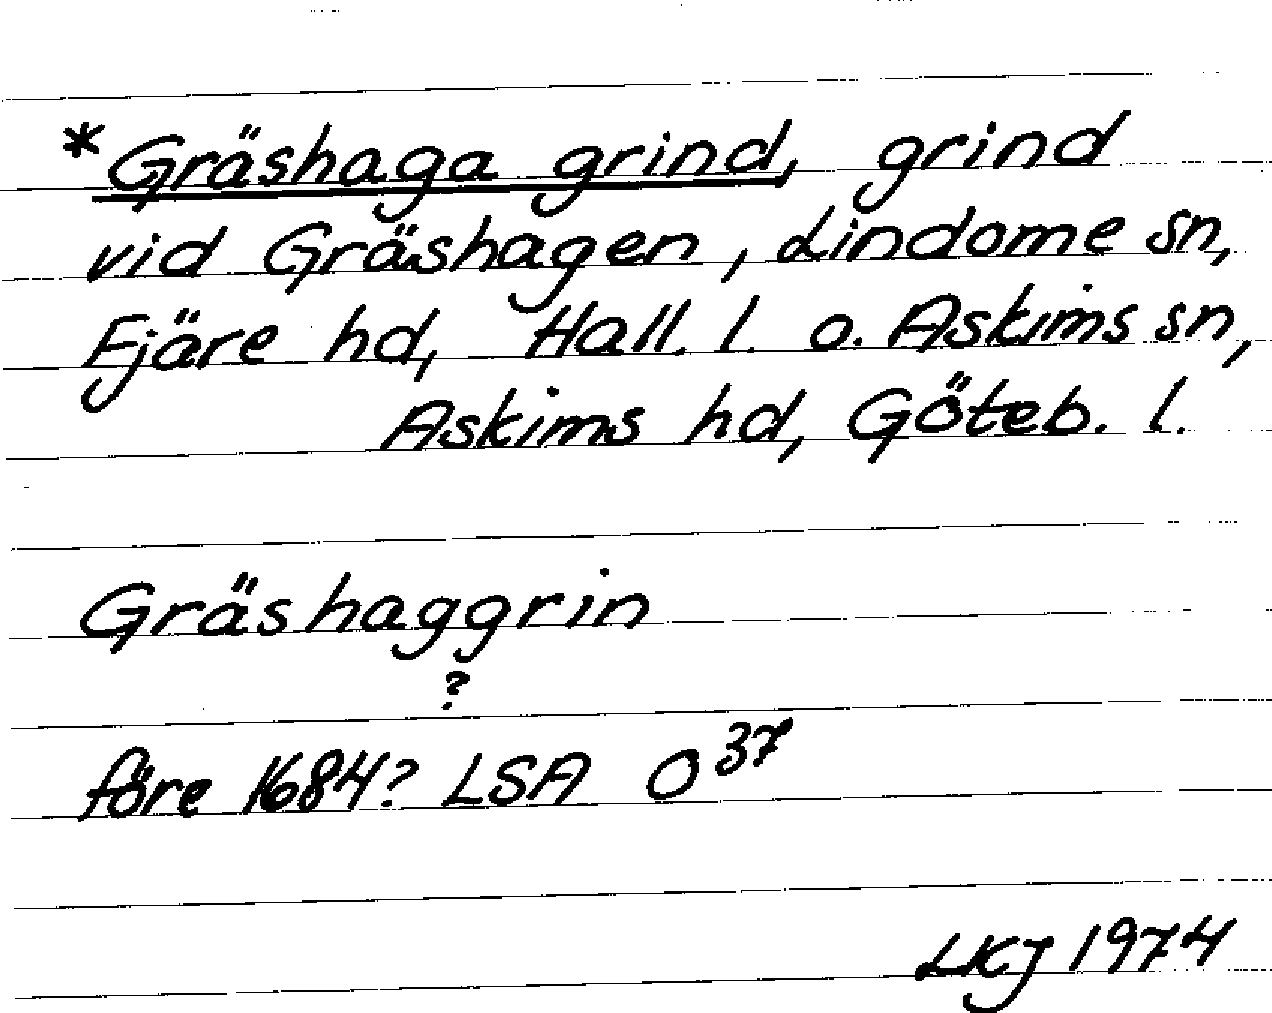 *Gräshaga grind, grind
vid Gräshagen, Lindome sn,
Fjäre hd, Hall. l. o. Askims sn,
Askims hd, Göteb. l.
Gräshaggrin
?
före 1684? LSA O37
LKJ 1974